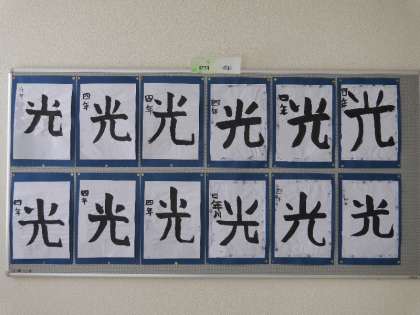 光
四年
光
四年
光
四年
光
四年
光
四年
光
四年
光
四年
光
四年
光
四年
光
光
光